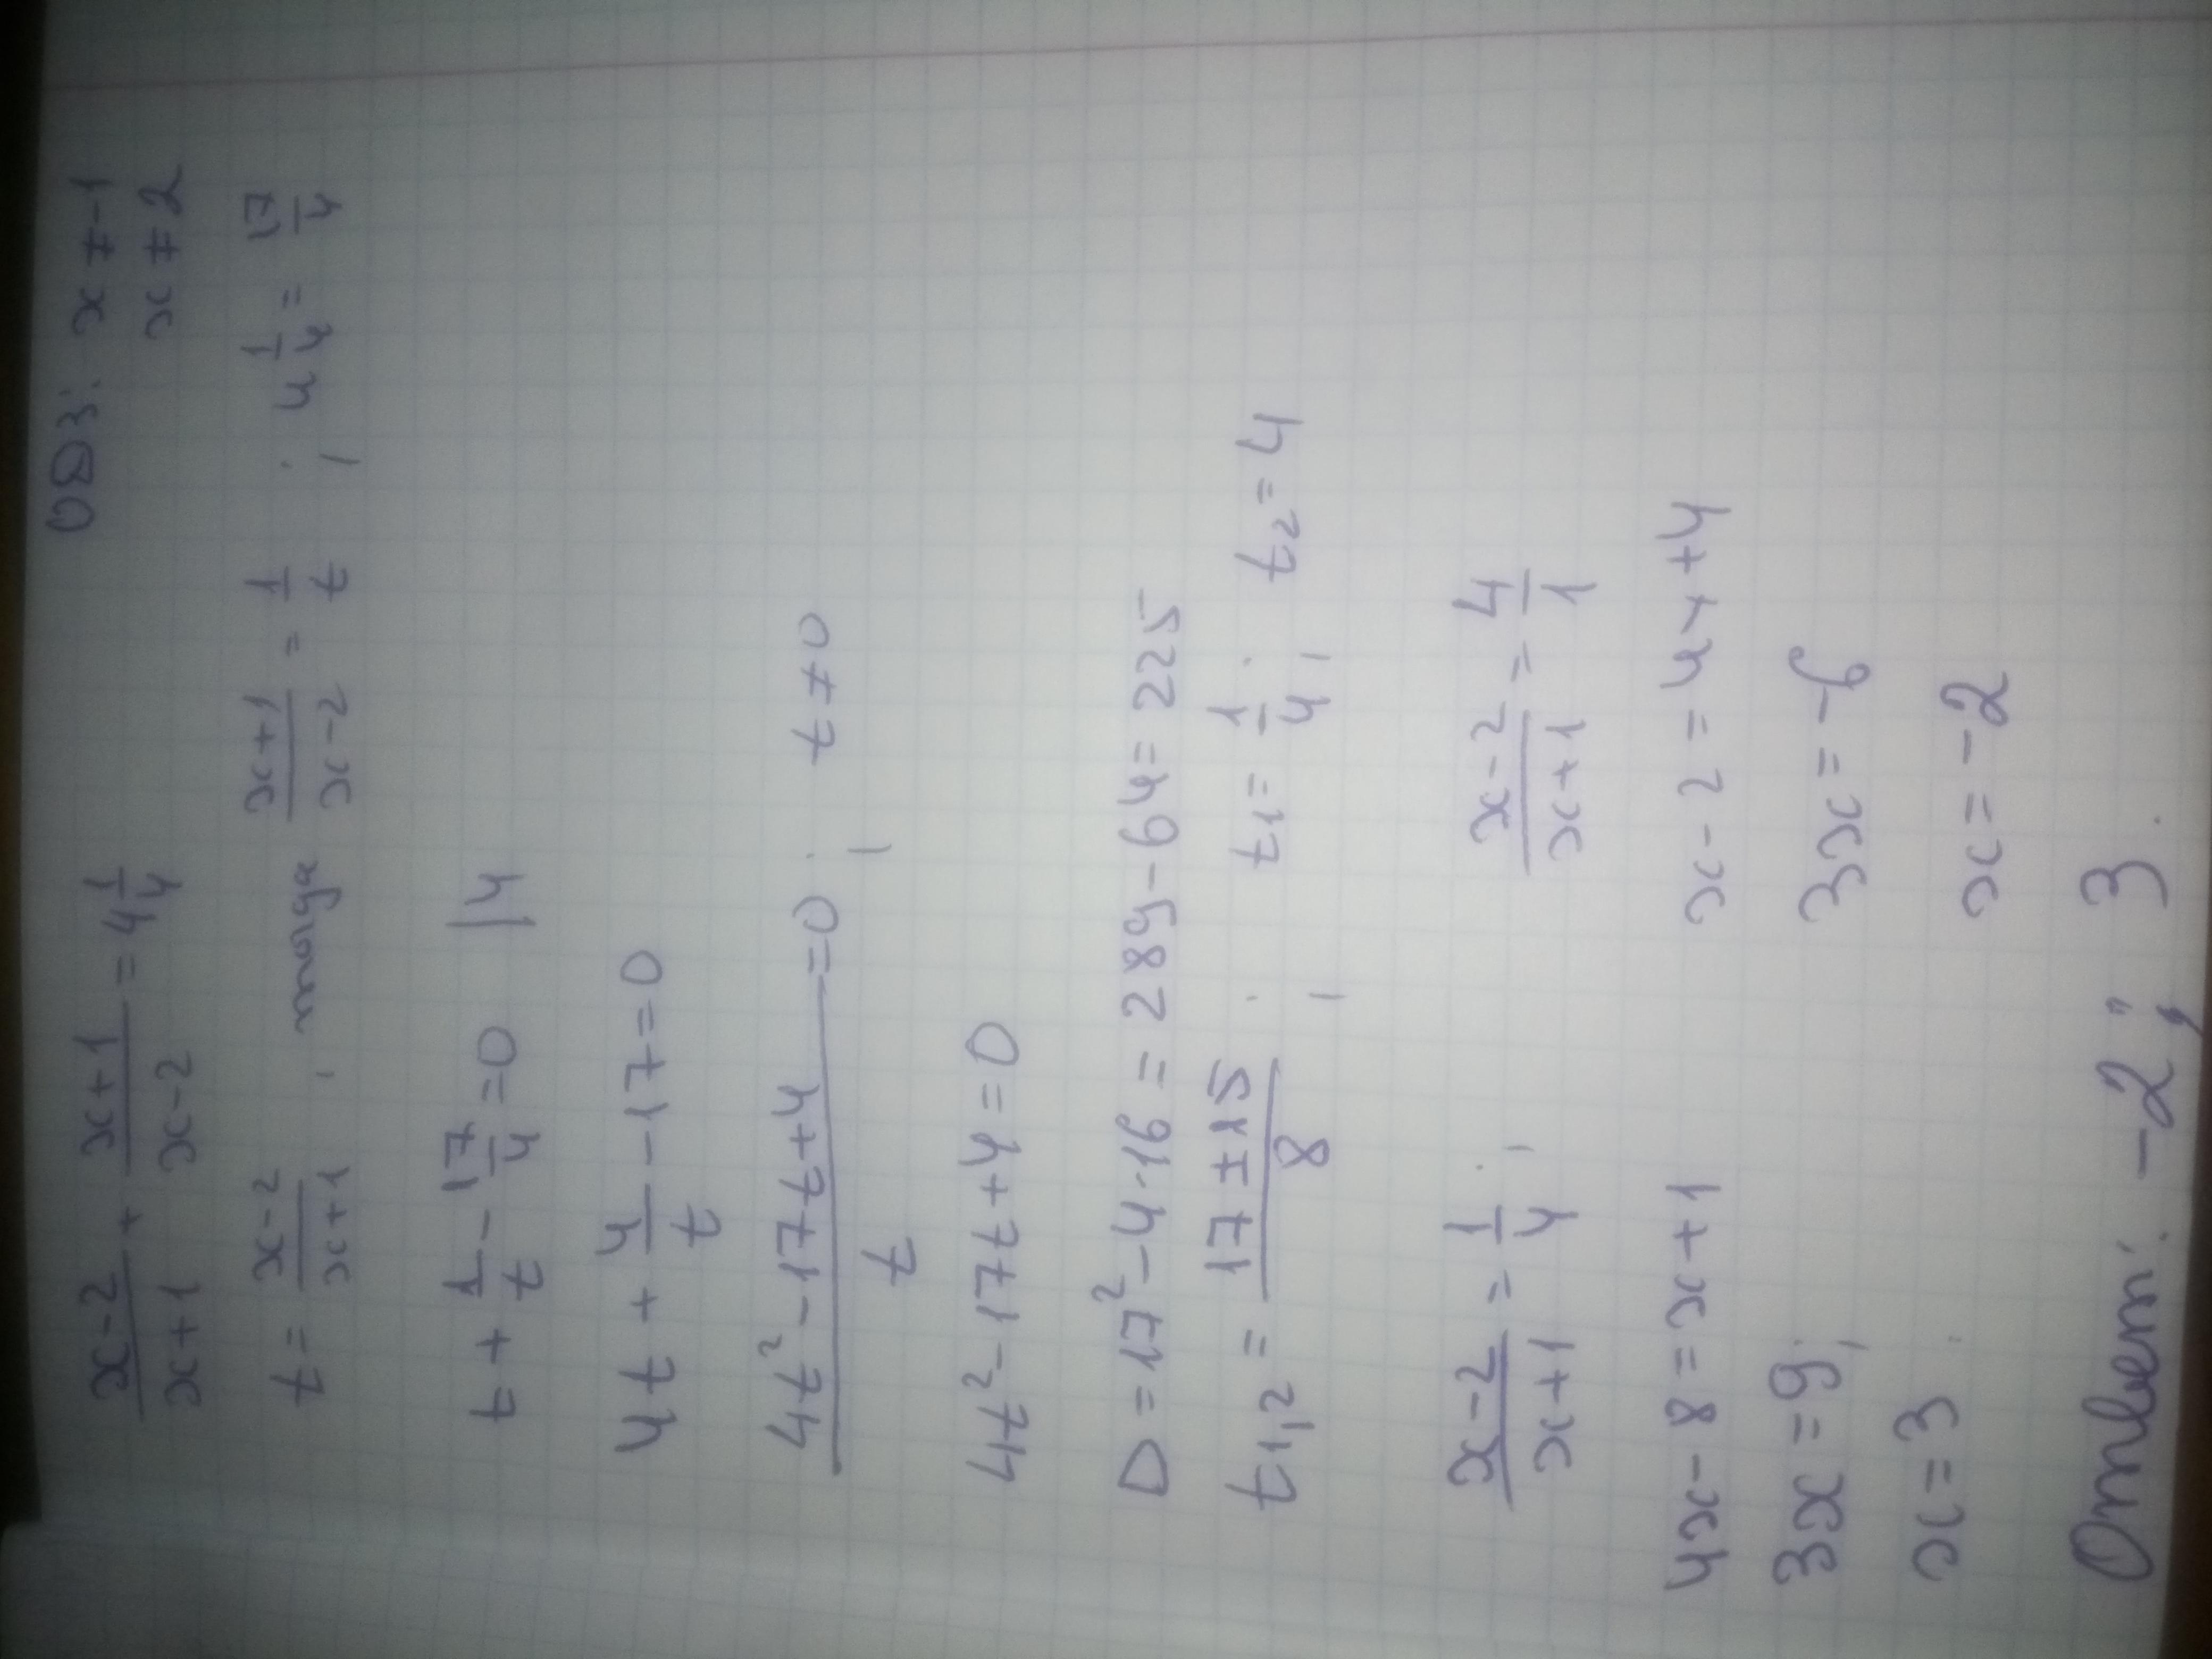 (x-2)/(x+1) + (x+1)/(x-2) = 4 1/4 ОДЗ: x ≠ -1
x ≠ 2
t = (x-2)/(x+1), тогда (x+1)/(x-2) = 1/t ; 4 1/4 = 17/4
t + 1/t - 17/4 = 0 |4
4t + 4/t - 17 = 0
(4t² - 17t + 4)/t = 0 ; t ≠ 0
4t² - 17t + 4 = 0
D = 17² - 4·16 = 289 - 64 = 225
t1,2 = (17 ± 15)/8 ; t1 = 1/4 ; t2 = 4
(x-2)/(x+1) = 1/4 ; (x-2)/(x+1) = 4/1
4x - 8 = x + 1 x - 2 = 4x + 4
3x = 9; 3x = -6
x = 3. x = -2
Ответ: -2; 3.